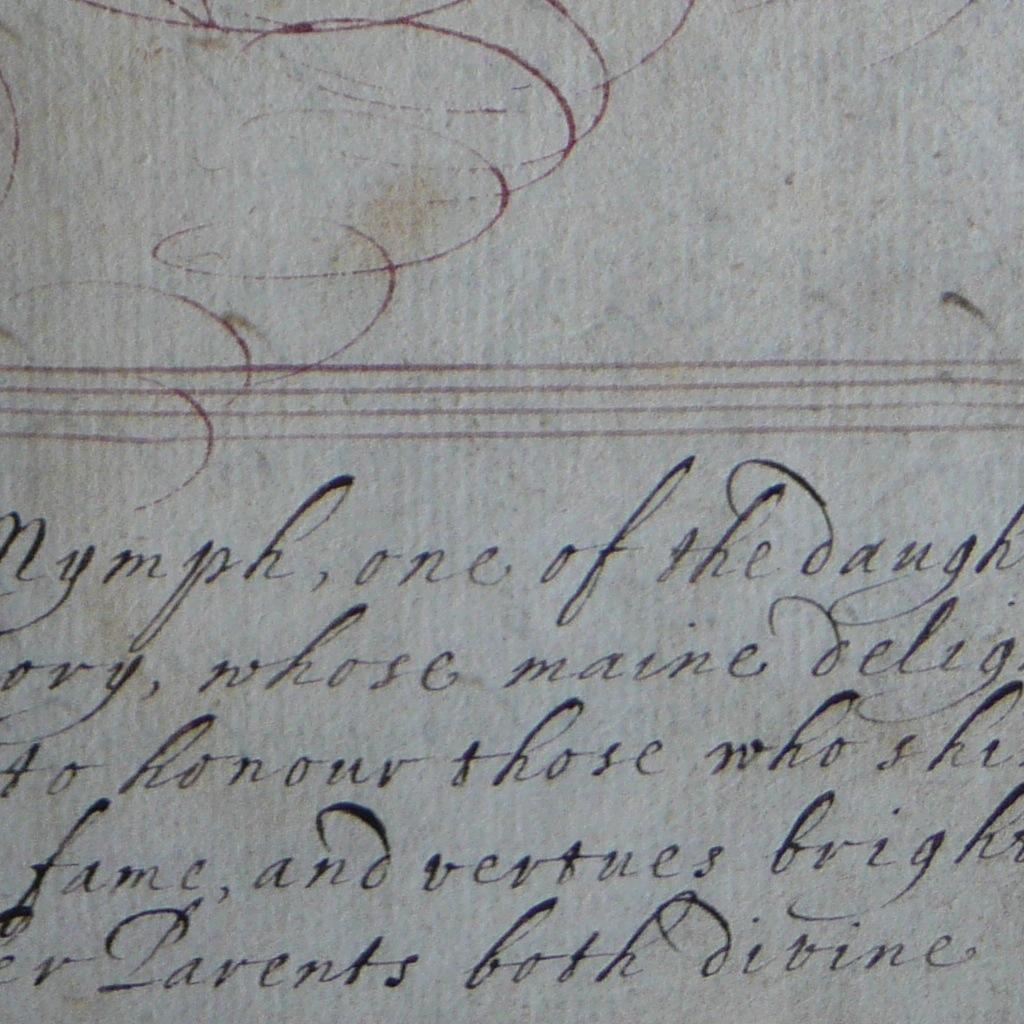 Nymph, one of the daugh
ory, whose maine delig
to honour those who shi
fame, and vertues bright
er Parents both divine